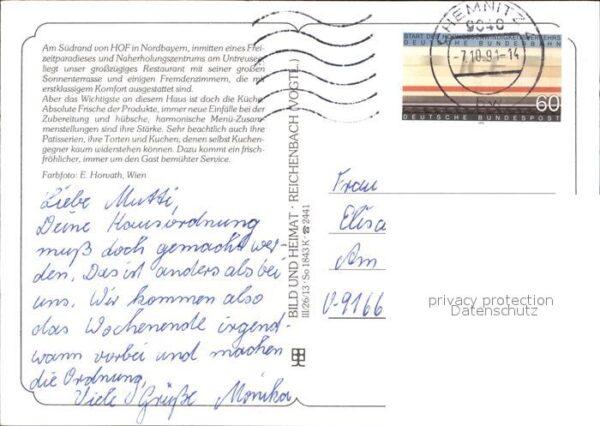 Am Südrand von HOF in Nordbayern, inmitten eines Frei-
zeitparadieses und Naherholungszentrums am Untreusee,
liegt unser großzügiges Restaurant mit seiner großen
Sonnenterrasse und einigen Fremdenzimmern, die mit
erstklassigem Komfort ausgestattet sind.
Aber das Wichtigste an diesem Haus ist doch die Küche.
Absolute Frische der Produkte, immer neue Einfälle bei der
Zubereitung und hübsche, harmonische Menü-Zusam-
menstellungen sind ihre Stärke. Sehr beachtlich auch ihre
Patisserien, ihre Torten und Kuchen, denen selbst Kuchen-
gegner kaum widerstehen können. Dazu kommt ein frisch-
fröhlicher, immer um den Gast bemühter Service.
Farbfoto: E. Horvath, Wien
Liebe Mutti,
Deine Hausordnung
muß doch gemacht wer-
den. Das ist anders als bei
uns. Wir kommen also
das Wochenende irgend-
wann vorbei und machen
die Ordnung.
Viele Grüße Monika
BILD UND HEIMAT · REICHENBACH (VOGTL.)
III/26/13 · So 1843 K · ☎ 2441
CHEMNITZ
9048
-7.10.91-14
START DES HOCHGESCHWINDIGKEITSVERKEHRS
DEUTSCHE BUNDESBAHN
60
DEUTSCHE BUNDESPOST
Frau
Elisa
Am
V-9166
privacy protection
Datenschutz